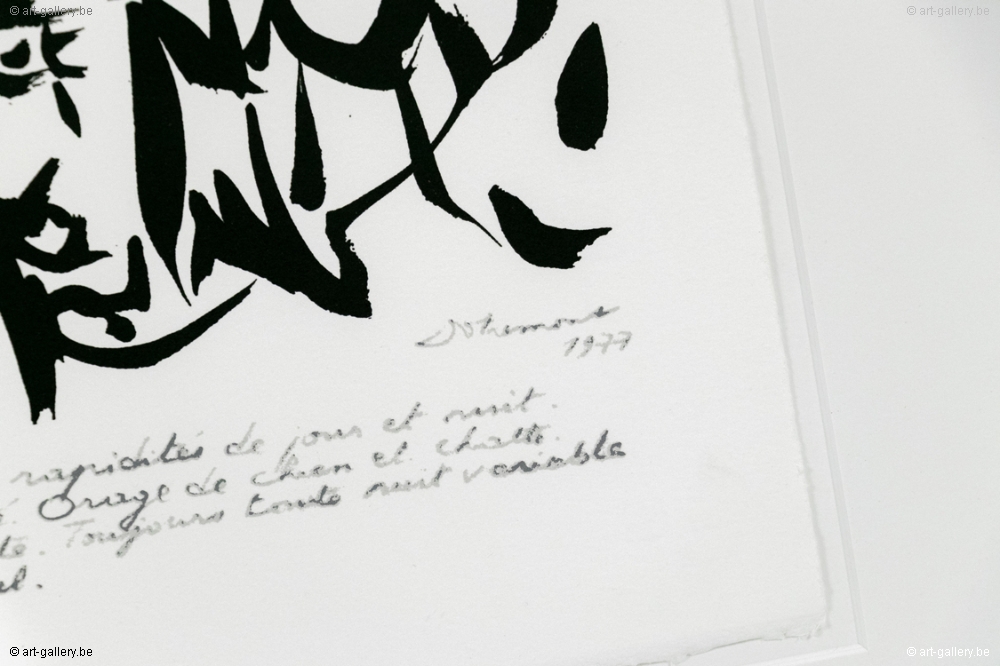 © art-gallery.be
© art-gallery.be
Dotremont
1977
rapidités de jour et nuit.
. Orage de chien et chatte.
te. Toujours toute nuit variable
el.
© art-gallery.be
© art-gallery.be